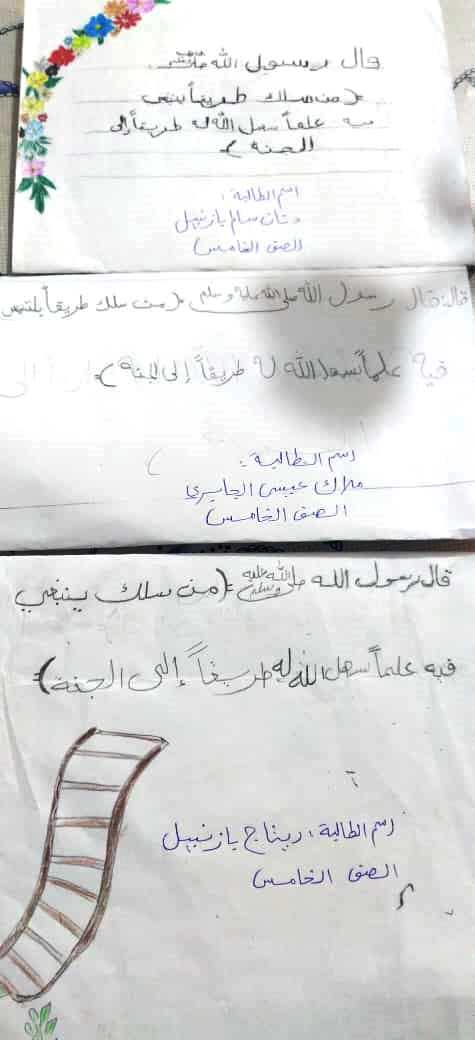 قال رسول الله ﷺ:
(من سلك طريقاً يبتغي
فيه علماً سهل الله له طريقاً إلى
الجنة)
اسم الطالبة:
سالم بازنبيل
الصف الخامس
قال: قال رسول الله صلى الله عليه وسلم (من سلك طريقاً يلتمس
فيه علماً سهل الله له طريقاً إلى الجنة)
اسم الطالبة:
ملاك عيسى الجابري
الصف الخامس
قال رسول الله صلى الله عليه وسلم: (من سلك ينبغي
فيه علماً سهل الله له طريقاً إلى الجنة)
اسم الطالبة: ديناج بازنبيل
الصف الخامس